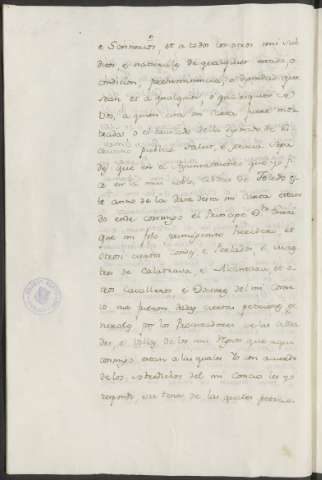 e Senorios, et a todos los otros mis sub
ditos, e naturales de qualquier estado, o
condicion, preheminencia, o dignidad que
sean et a qualquier, o qualesquier de
vos, a quien esta mi Carta fuere mos
trada, o el traslado della signado de es
crivano publico Salud, e gracia, sepa
des que en el Ayuntamiento que yo fi
ce en la mui noble cibdad de Toledo es
te anno de la data desta mi Carta estan
do ende conmigo el Principe Dn Enrri
que mi fijo primogenito heredero et
otros ciertos condes e Perlados, e maes
tres de Calatrava, e Alcantara et o
tros Cavalleros e Doctores del mi Conse
jo, me fueron dadas ciertas peticiones ge
nerales por los Procuradores de las cibda
des, e Villas de los mis Regnos que aqui
conmigo estan a las quales Yo con acuerdo
de los sobredichos del mi Consejo les
respondi, su tenor de las quales peticio